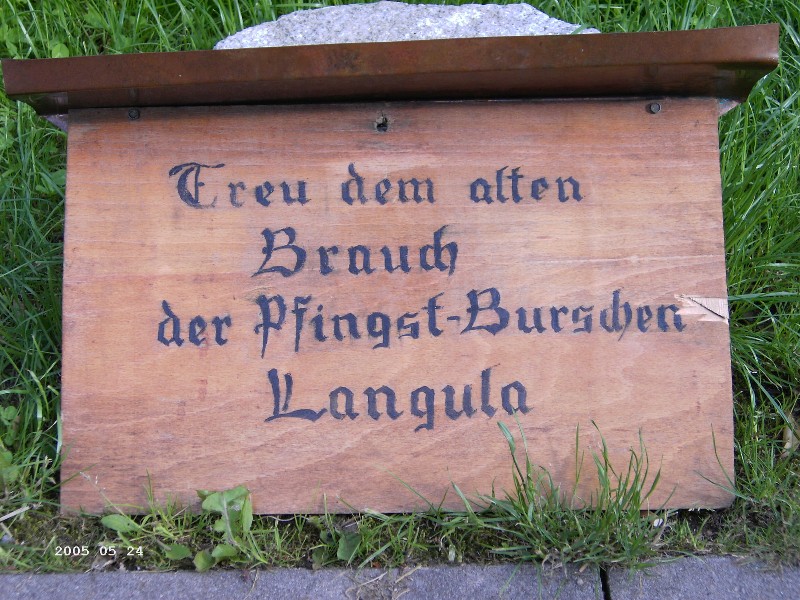 Treu dem alten
Brauch
der Pfingst-Burschen
Langula
2005 05 24